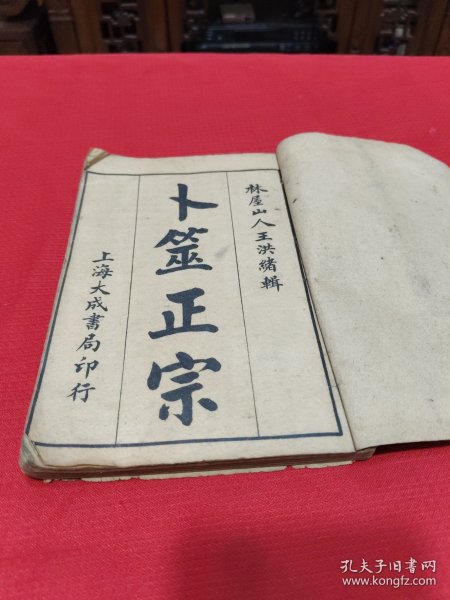 林屋山人王洪緒輯
卜筮正宗
上海大成書局印行
孔夫子旧书网
www.kongfz.com